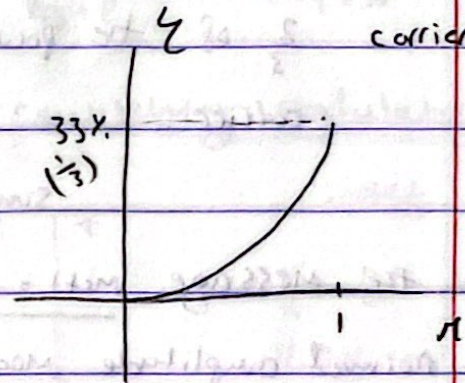 η carrie
33%.
(1/3)
1 μ